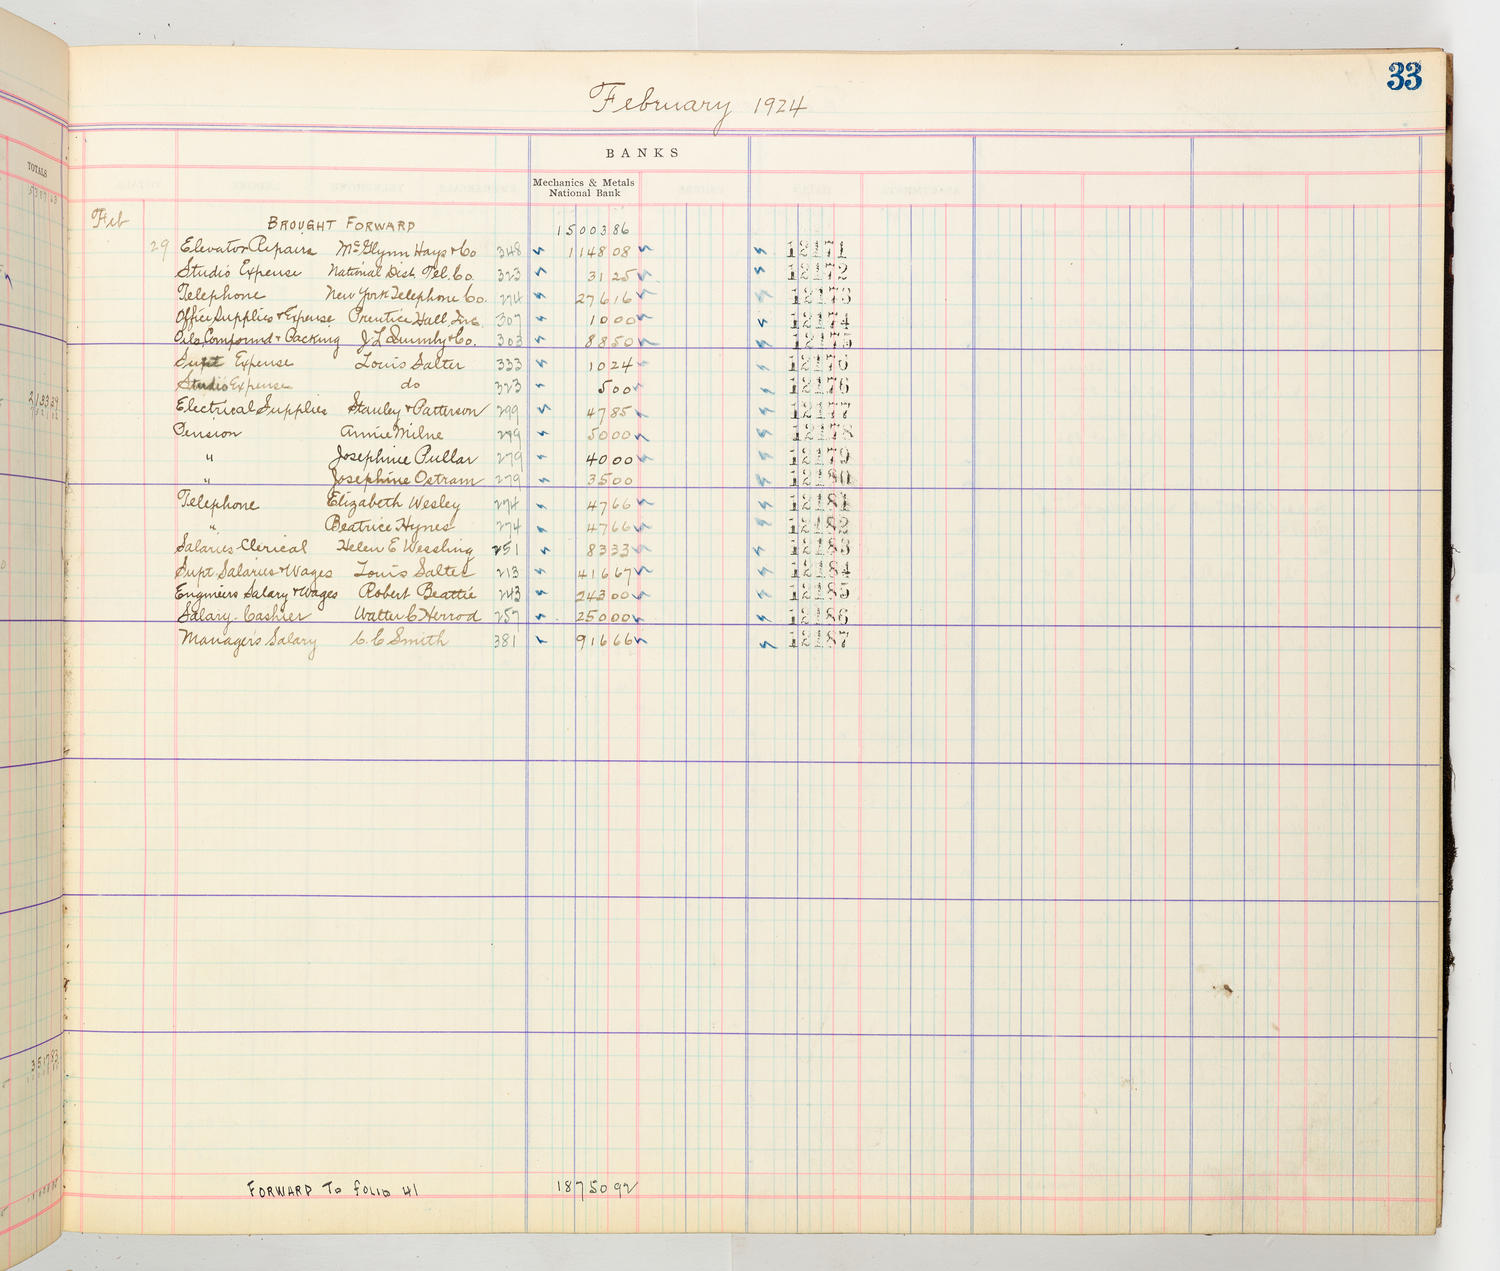 33
February 1924
TOTALS
BANKS
Mechanics & Metals
National Bank
Feb
BROUGHT FORWARD 15003 86
29 Elevator Repairs McGlynn Hays & Co 348 1148 08 12171
Studio Expense National Dist. Tel. Co. 323 31 25 12172
Telephone New York Telephone Co. 274 276 16 12173
Office Supplies & Expense Prentice Hall, Inc. 307 10 00 12174
Oils, Compound & Packing J L & Co. 303 88 50 12175
Supt Expense Louis Salter 333 10 24 12176
Studio Expense do 323 5 00 12176
Electrical Supplies Stanley & Patterson 299 47 85 12177
Pension Annie Milne 279 50 00 12178
" Josephine Pullar 279 40 00 12179
" Josephine Ostram 279 35 00 12180
Telephone Elizabeth Wesley 274 47 66 12181
" Beatrice Hynes 274 47 66 12182
Salaries Clerical Helen E Wessling 251 83 33 12183
Supt Salaries & Wages Louis Salter 213 416 67 12184
Engineers Salary & Wages Robert Beattie 243 243 00 12185
Salary. Cashier Walter C Herrod 257 250 00 12186
Managers Salary C. C Smith 381 916 66 12187
FORWARD To folio 41 18750 92